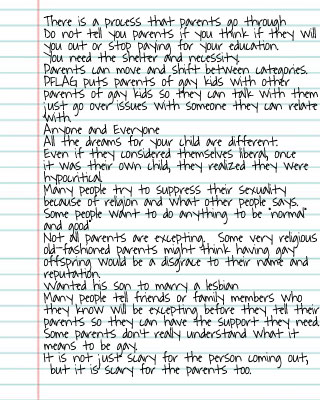 There is a process that parents go through
Do not tell you parents if you think if they will
you out or stop paying for your education.
You need the shelter and necessity.
Parents can move and shift between categories.
PFLAG puts parents of gay kids with other
parents of gay kids so they can talk with them
just go over issues with someone they can relate
with.
Anyone and Everyone
All the dreams for your child are different.
Even if they considered themselves liberal, once
it was their own child, they realized they were
hypocritical.
Many people try to suppress their sexuality
because of religion and what other people says.
Some people want to do anything to be "normal"
and good
Not all parents are excepting. Some very religious
old-fashioned parents might think having gay
offspring would be a disgrace to their name and
reputation.
Wanted his son to marry a lesbian
Many people tell friends or family members who
they know will be excepting before they tell their
parents so they can have the support they need.
Some parents don't really understand what it
means to be gay.
It is not just scary for the person coming out,
but it is scary for the parents too.